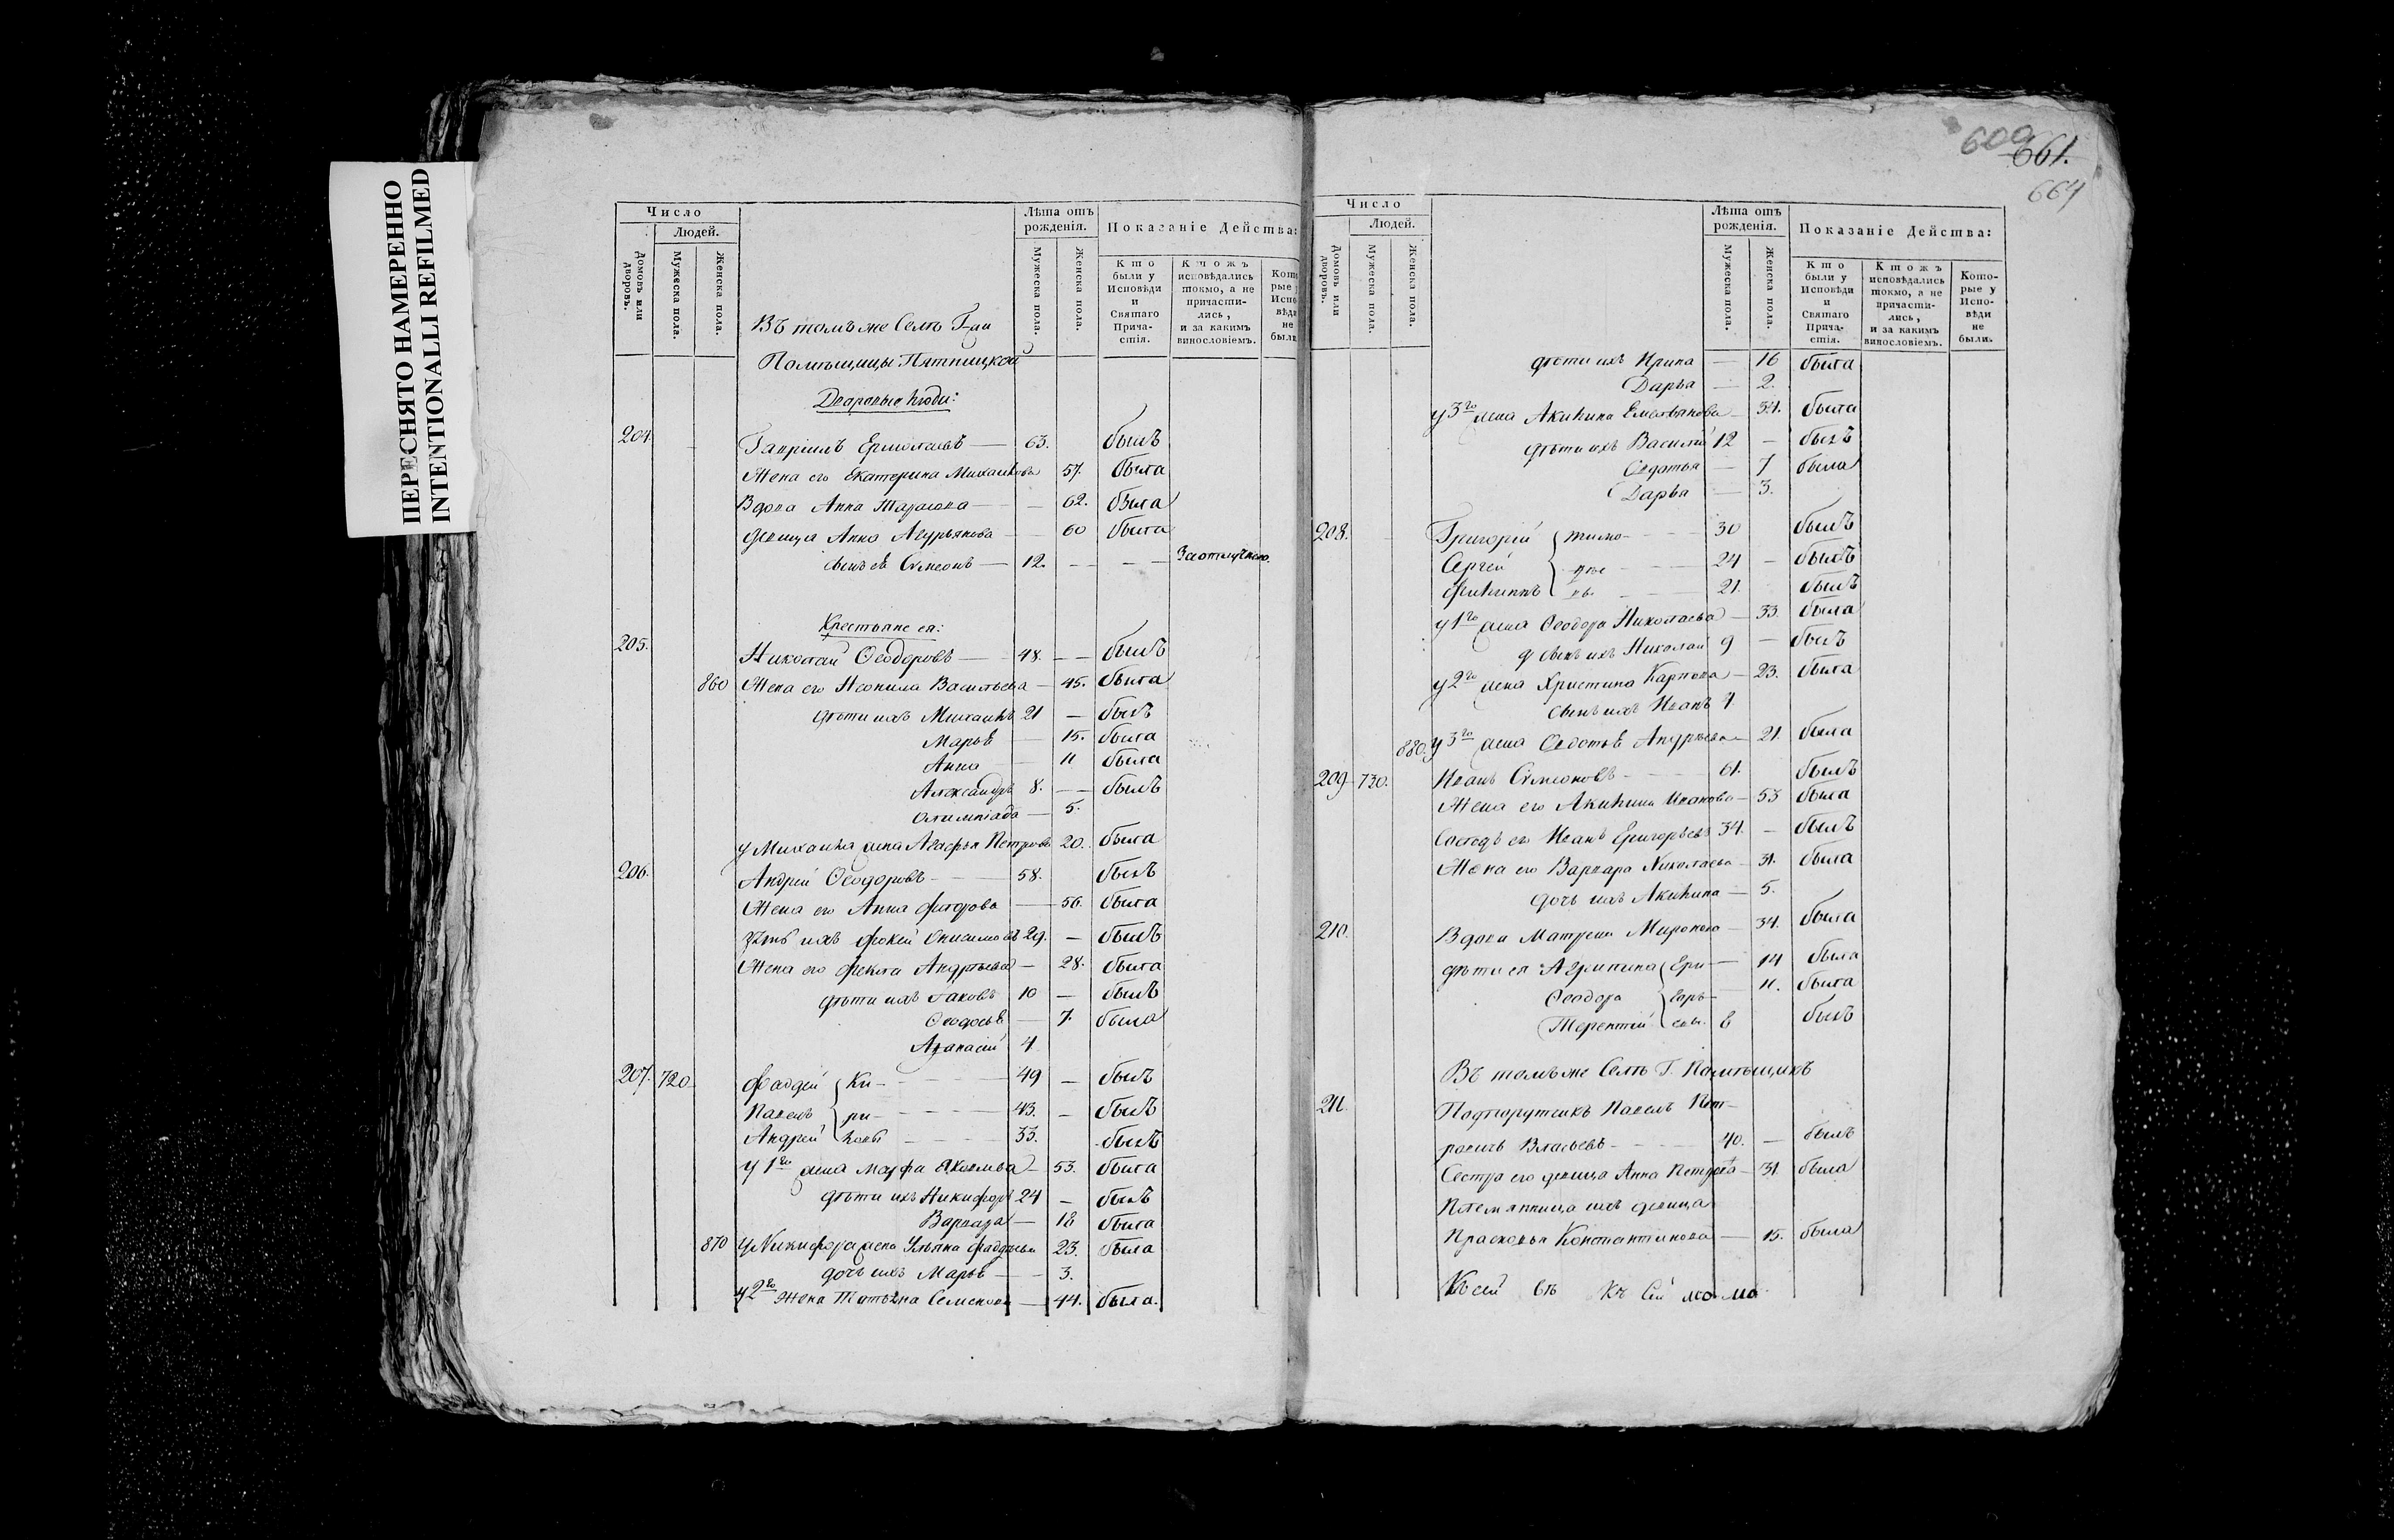 ПЕРЕСНЯТО НАМЕРЕННО
INTENTIONALLI REFILMED
Число
Людей.
Домовъ или дворовъ.
Мужеска пола.
Женска пола.
Лѣта отъ рожденія.
Мужеска пола.
Женска пола.
Показаніе Действа:
Кто были у Исповѣди и Святаго Причастія.
Ктожъ исповѣдались токмо, а не причастились, и за какимъ винословіемъ.
Въ томъ же Селѣ Г-жи
Помѣщицы Пятницкой
Дворовые люди:
204. Гавріилъ Ермолаевъ — 63. былъ
Жена его Екатерина Михаилова 57. была
Вдова Анна Тарасова — 62. была
Девица Анна Агурьянова — 60 была
сынъ ея Симеонъ — 12. — За отлучкою.
Крестьяне ея:
205. Николай Ѳеодоровъ — 48. — былъ
860 Жена его Неонила Васильева — 45. была
дѣти ихъ Михаилъ 21 — былъ
Марья — 15. была
Анна — 11 была
Александръ 8. — былъ
Олимпіада — 5.
у Михаила жена Агафья Петрова 20. была
206. Андрей Ѳеодоровъ — 58. былъ
Жена его Анна Федорова — 56. была
зять ихъ Фокей Онисимовъ 29. — былъ
Жена его Фекла Андрѣева — 28. была
дѣти ихъ Іаковъ 10 — былъ
Ѳеодосья — 7. была
Аѳанасій 4
207. 720 Фаддей Ки- 49 — былъ
Павелъ ри- 43. — былъ
Андрей ловы 33. былъ
у 1го жена Марфа Яковлева — 53. была
дѣти ихъ Никифоръ 24 — былъ
Варвара — 18 была
870 у Никифора жена Ульяна Фаддѣева 23. была
дочь ихъ Марья — 3.
у 2го Жена Татьяна Семенова — 44. была.
600
661.
664
Число
Людей.
Домовъ или дворовъ.
Мужеска пола.
Женска пола.
Лѣта отъ рожденія.
Мужеска пола.
Женска пола.
Показаніе Действа:
Кто были у Исповѣди и Святаго Причастія.
Ктожъ исповѣдались токмо, а не причастились, и за какимъ винословіемъ.
Которые у Исповѣди не были.
дѣти ихъ Ирина — 16 была
Дарья — 2.
у 3го жена Акилина Емельянова — 34. была
дѣти ихъ Василій 12 — былъ
Федотья — 7 была
Дарья — 3.
208. Григорій Тимо- 30 былъ
Сергей фее- 24 — былъ
Филиппъ вы. 21. былъ
у 1го жена Ѳеодора Николаева — 33. была
сынъ ихъ Николай 9 — былъ
у 2го жена Христина Карпова — 23. была
сынъ ихъ Иванъ 4
880. у 3го жена Федотья Андрѣева 21. была
209 730. Иванъ Симеоновъ — 61. былъ
Жена его Акилина Иванова — 53 была
Сосѣдъ его Иванъ Григорьевъ 34. — былъ
Жена его Варвара Николаева — 31. была
дочь ихъ Акилина — 5.
210. Вдова Матрена Миронова — 34. была
дѣти ея Агрипина Гри- — 14 была
Ѳеодора горь- 11. была
Терентій евы. 8 былъ
Въ томъ же Селѣ Г. Помѣщикъ
211. Подпорутчикъ Павелъ Пет-
ровичъ Власьевъ — 40. — былъ
Сестра его девица Анна Петрова — 31 была
Племянница ихъ девица
Прасковья Константинова — 15. была